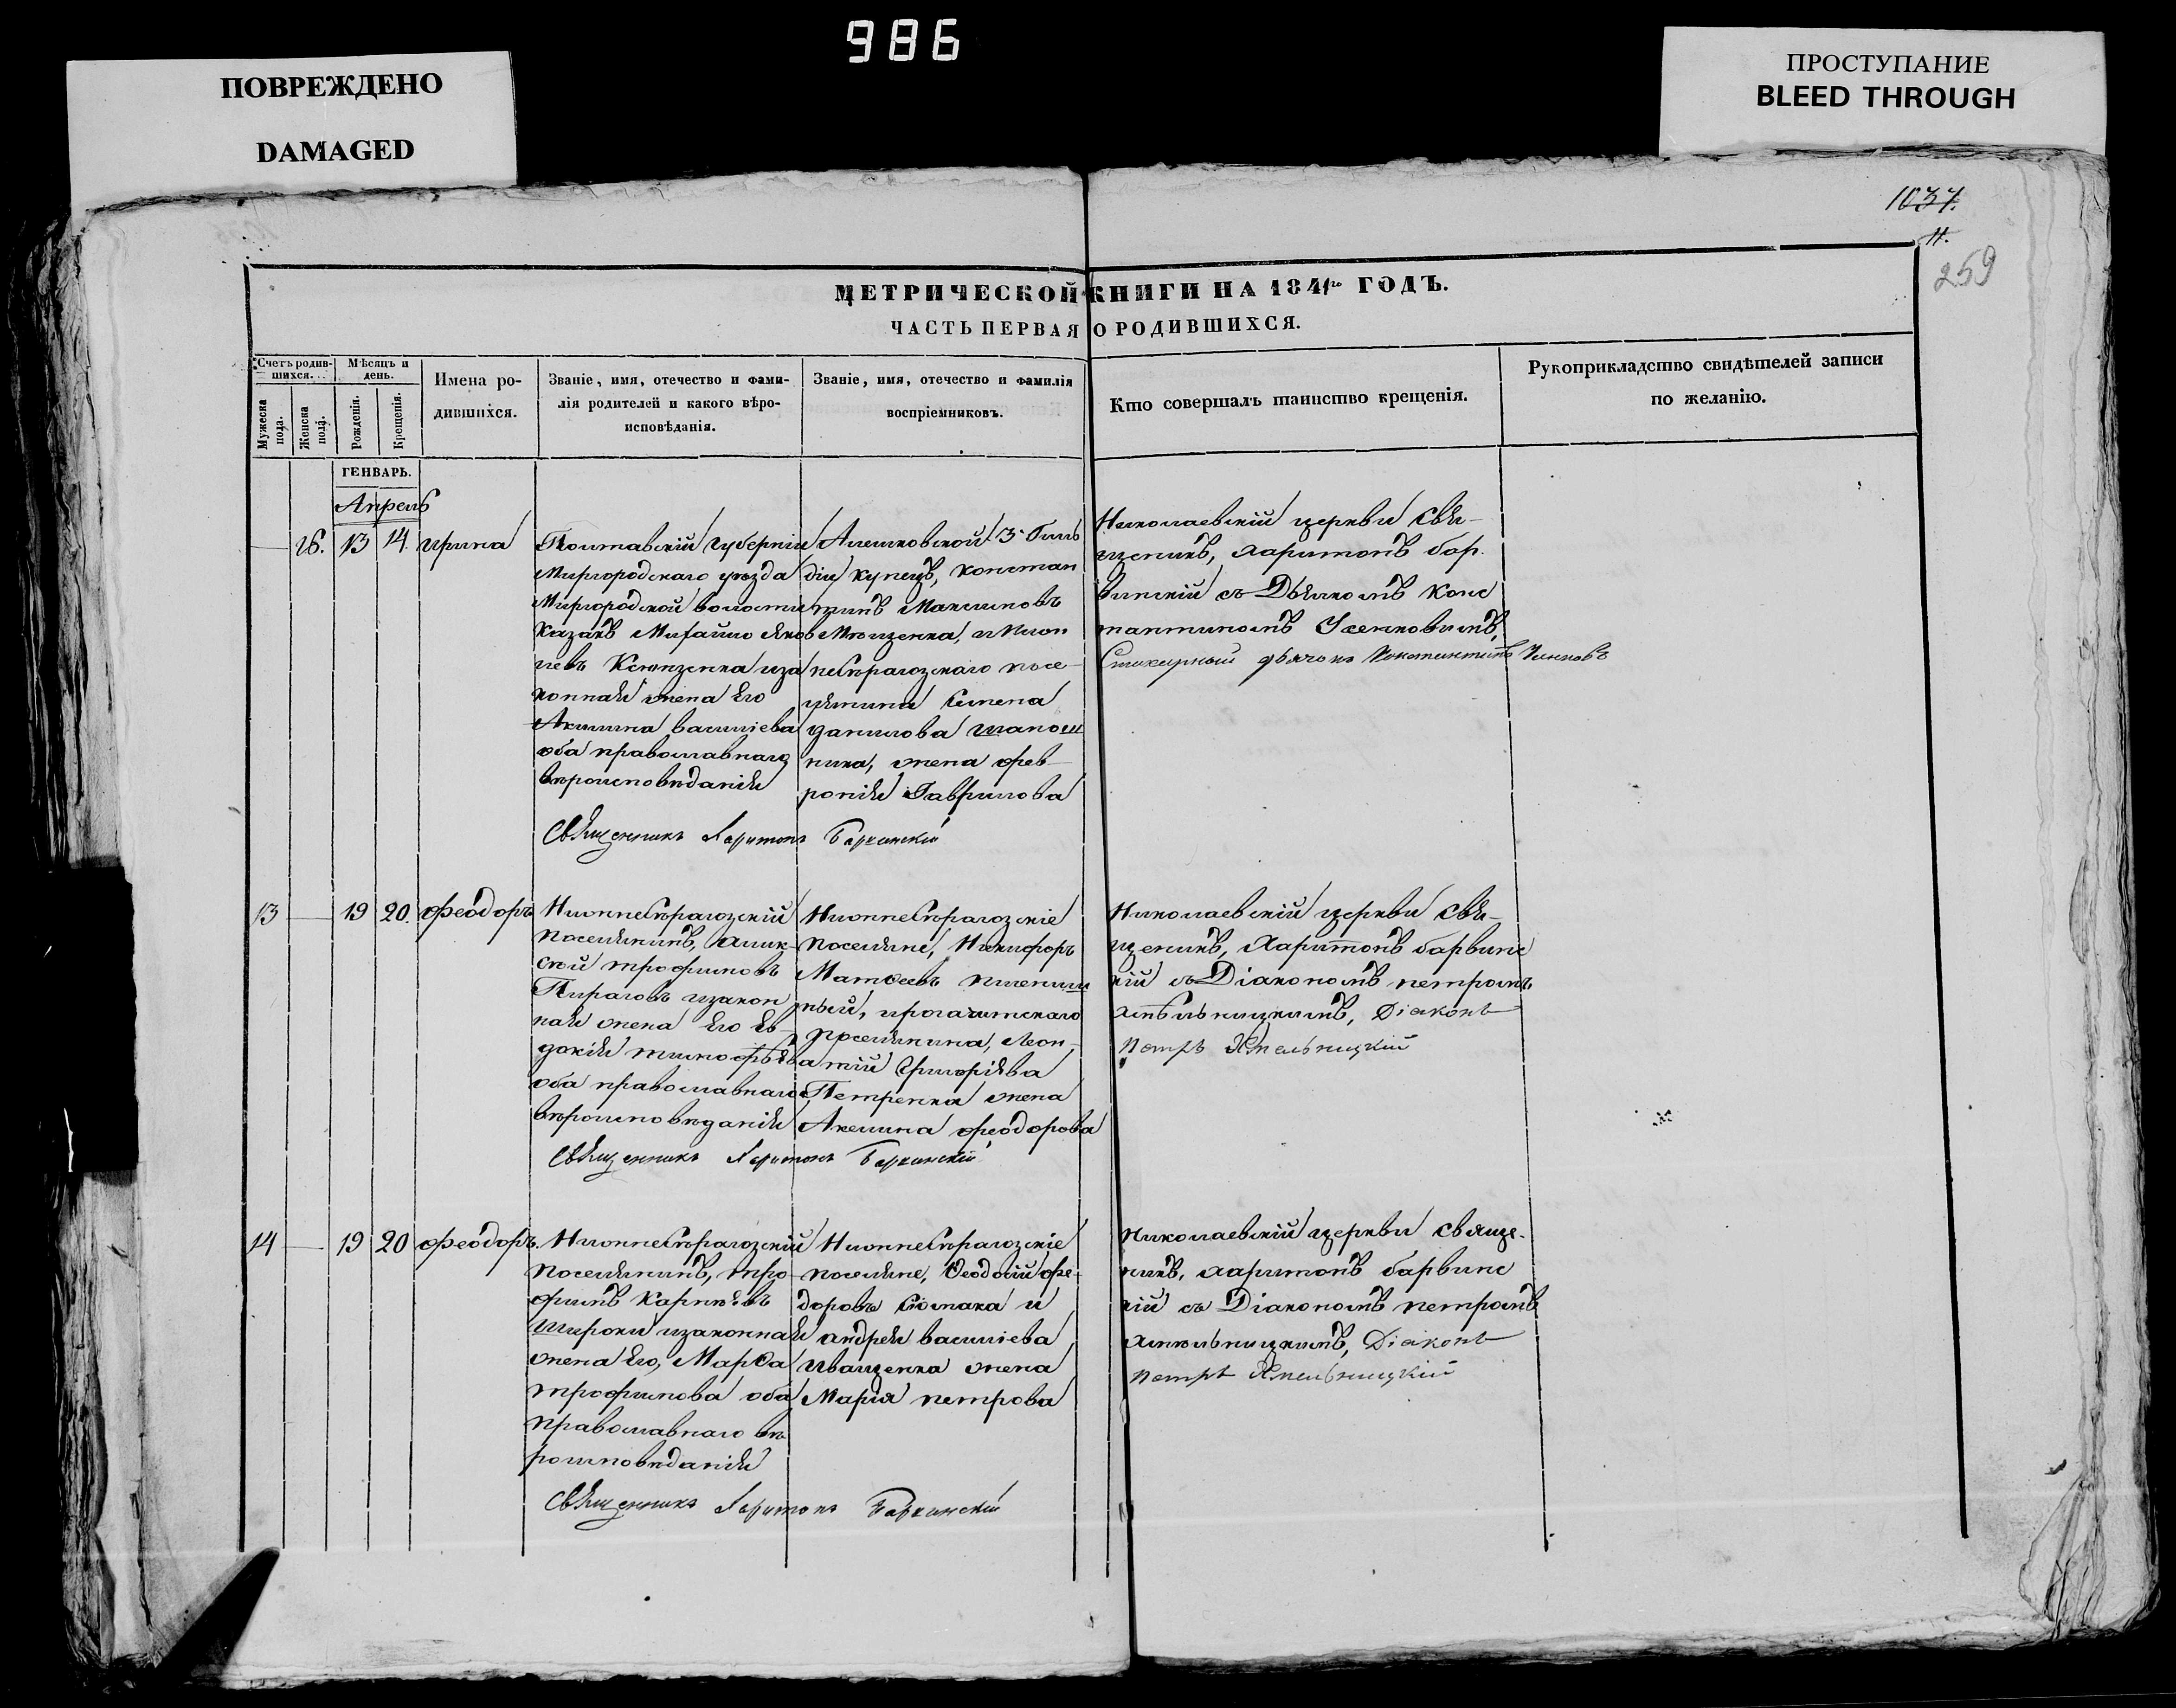 986
ПОВРЕЖДЕНО
DAMAGED
ПРОСТУПАНИЕ
BLEED THROUGH
1037.
11.
259
МЕТРИЧЕСКОЙ КНИГИ НА 1841го ГОДЪ.
ЧАСТЬ ПЕРВАЯ О РОДИВШИХСЯ.
Счетъ родив-
шихся.
Мужеска пола.
Женска пола.
Мѣсяцъ и
день.
Рожденія.
Крещенія.
Имена ро-
дившихся.
Званіе, имя, отечество и фами-
лія родителей и какого вѣро-
исповѣданія.
Званіе, имя, отечество и фамилія
воспріемниковъ.
Кто совершалъ таинство крещенія.
Рукоприкладство свидѣтелей записи
по желанію.
ГЕНВАРЬ.
Апрель
16. 13 14. ирина
Полтавскій губерніи
Миргородскаго уезда
Миргородской волости
Казакъ Михайло Яков
левъ иза
конная жена Его
Акилина василіева
оба православнаго
вероисповеданія
Алешковской 3й Гиль
діи купецъ, констан
тинъ Максимовъ
посе-
лянина Семена
данилова шапош
ника, жена фев-
ронія Гаврилова
Николаевскій церкви Свя-
щеникъ, харитонъ бар
винскій съ Дьячкомъ Конс
тантиномъ
Стихарный дьячокъ Константинъ
Священникъ Харитонъ Барвинскій
13 19 20. феодоръ
поселянинъ, алик-
сей трофимовъ
Пираговъ изакон
ная жена Его Ев-
докія тимофѣева
оба православнаго
вероисповеданія
поселяне, Никифоръ
Матѳеевъ
ный,
поселянина, Леон-
тій Григоріева
Петренка жена
Акелина феодорова
Николаевскій церкви Свя-
щеникъ, Харитонъ барвинс
кій съ Діакономъ петромъ
хмѣльницкимъ, Діаконъ
Петръ Хмельницкій
Священникъ Харитонъ Барвинскій
14 19 20 феодоръ.
поселянинъ, тро-
фимъ Карпѣевъ
Широки изаконная
жена Его, Марѳа
трофимова оба
православнаго ве
роисповеданія
поселяне, Ѳеодосій фе-
доровъ и
андрея василіева
Иващенка жена
Марія петрова
Николаевскій церкви свяще-
никъ, харитонъ барвинс
кій съ Діакономъ петромъ
хмельницкимъ, Діаконъ
Петръ Хмельницкій
Священникъ Харитонъ Барвинскій